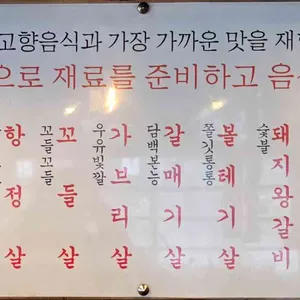 고향음식과 가장 가까운 맛을
으로 재료를 준비하고 음
숯불
돼지왕갈비
쫄깃통통
볼테기살
담백본능
갈매기살
우유빛깔
가브리살
꼬들꼬들
꼬들살
항정살